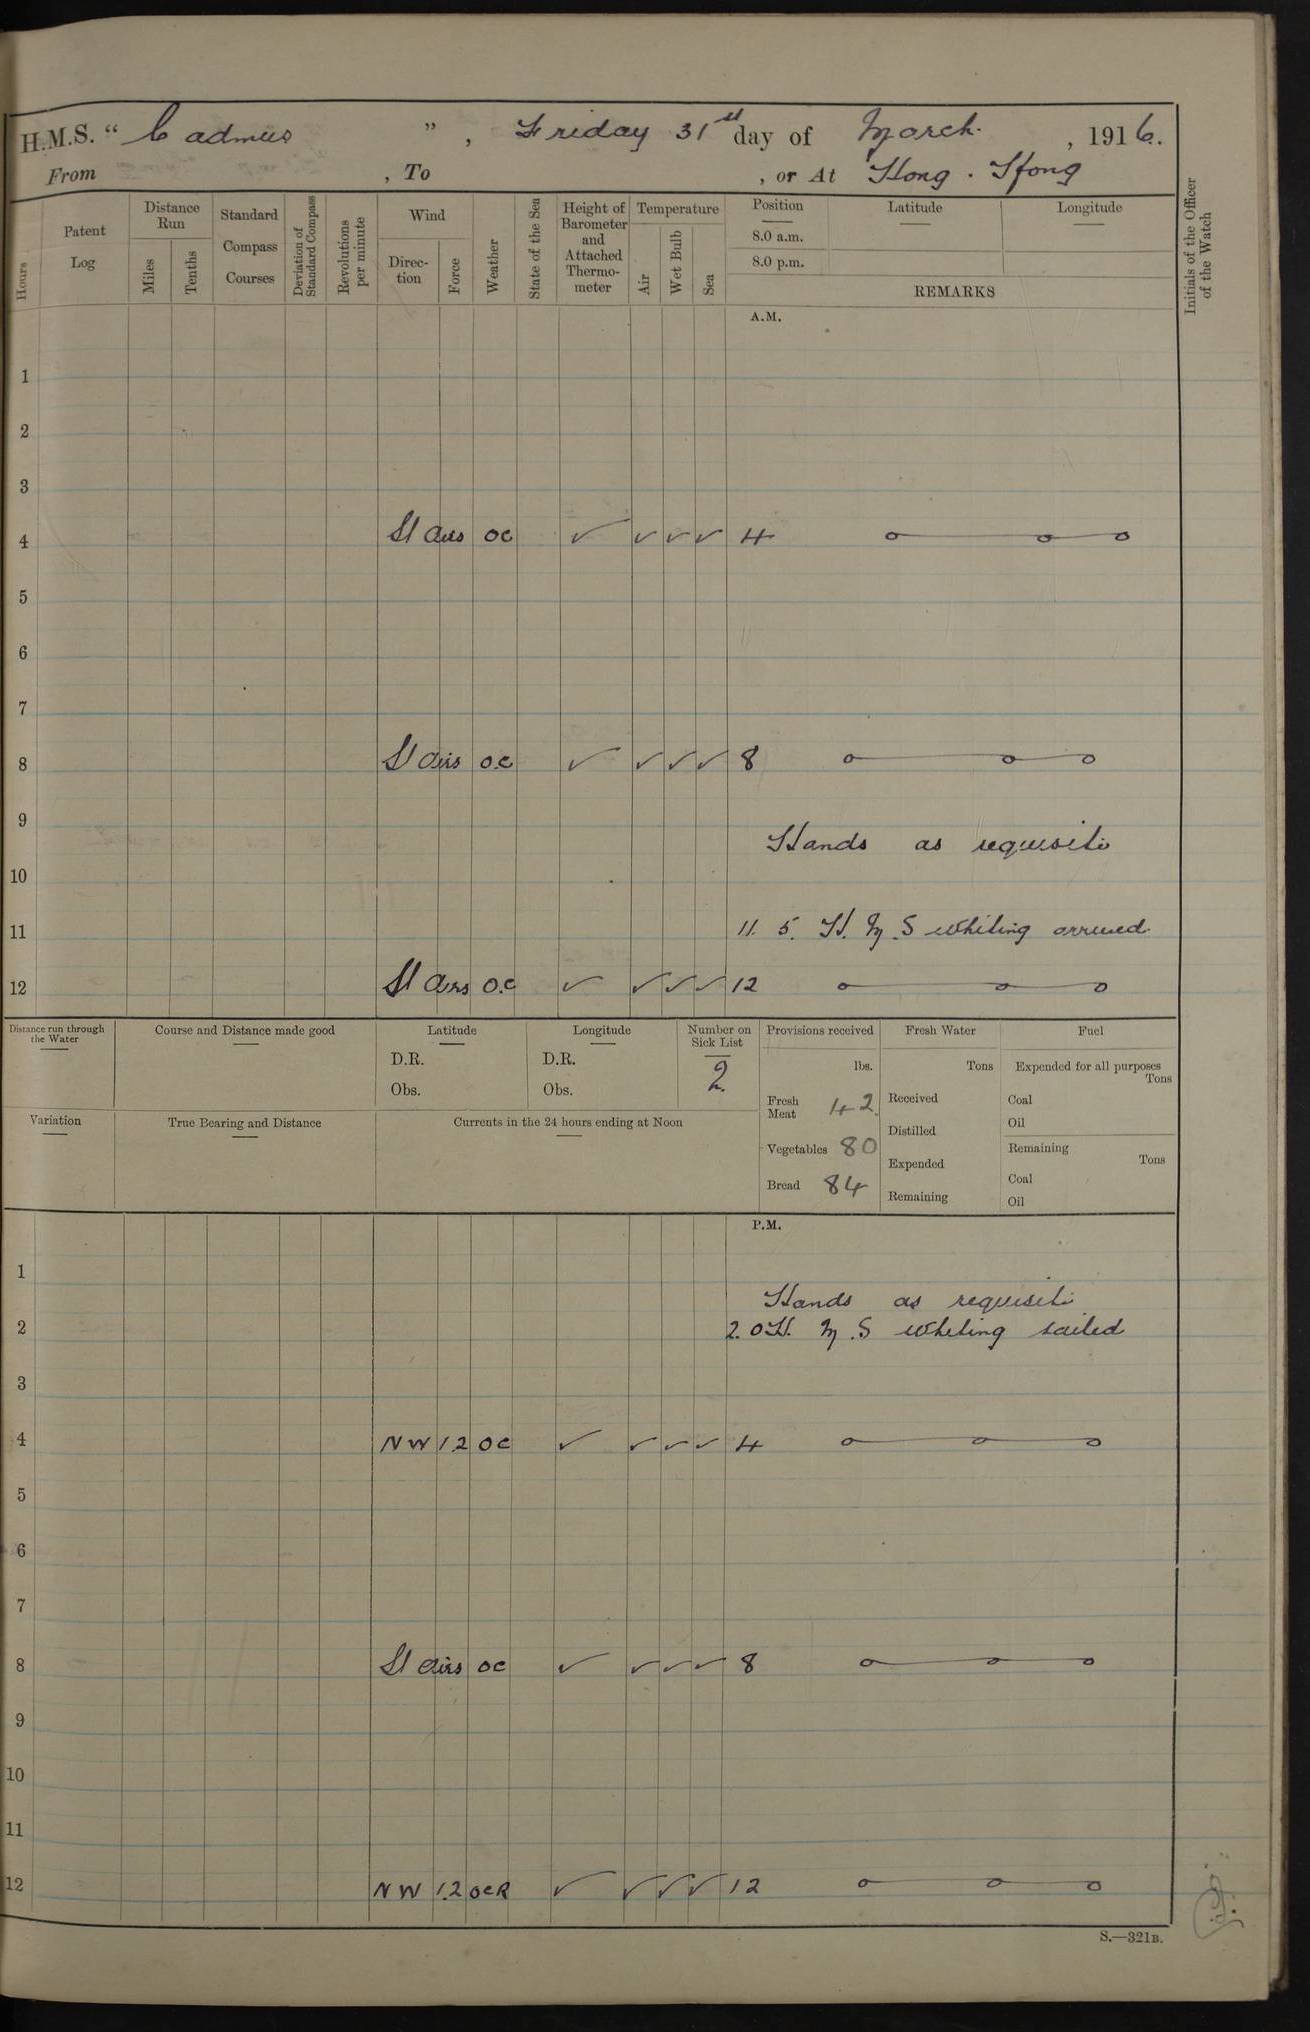 H.M.S. “ Cadmus ” , Friday 31st day of March. , 1916.
From , To , or At Hong . Kong
Hours
Patent Log
Distance Run
Miles
Tenths
Standard Compass Courses
Deviation of Standard Compass
Revolutions per minute
Wind
Direc-tion
Force
Weather
State of the Sea
Height of Barometer and Attached Thermo-meter
Temperature
Air
Wet Bulb
Sea
Position
8.0 a.m.
8.0 p.m.
Latitude
Longitude
REMARKS
Initials of the Officer of the Watch
A.M.
1
2
3
4 Lt airs oc ✓ ✓ ✓ ✓ 4
5
6
7
8 Lt airs o.c ✓ ✓ ✓ ✓ 8
9
Hands as requisite
10
11 11. 5. H. M. S whiting arrived.
12 Lt airs o.c ✓ ✓ ✓ ✓ 12
Distance run through the Water
Course and Distance made good
Latitude
D.R.
Obs.
Longitude
D.R.
Obs.
Number on Sick List
2
Provisions received
lbs.
Fresh Meat 42
Vegetables 80
Bread 84
Fresh Water
Tons
Received
Distilled
Expended
Remaining
Fuel
Expended for all purposes
Tons
Coal
Oil
Remaining
Tons
Coal
Oil
Variation
True Bearing and Distance
Currents in the 24 hours ending at Noon
P.M.
1
Hands as requisite
2 2.0 H. M. S whiting sailed
3
4 NW 1.2 oc ✓ ✓ ✓ ✓ 4
5
6
7
8 Lt airs oc ✓ ✓ ✓ ✓ 8
9
10
11
12 NW 1.2 ocR ✓ ✓ ✓ ✓ 12
S.—321B.